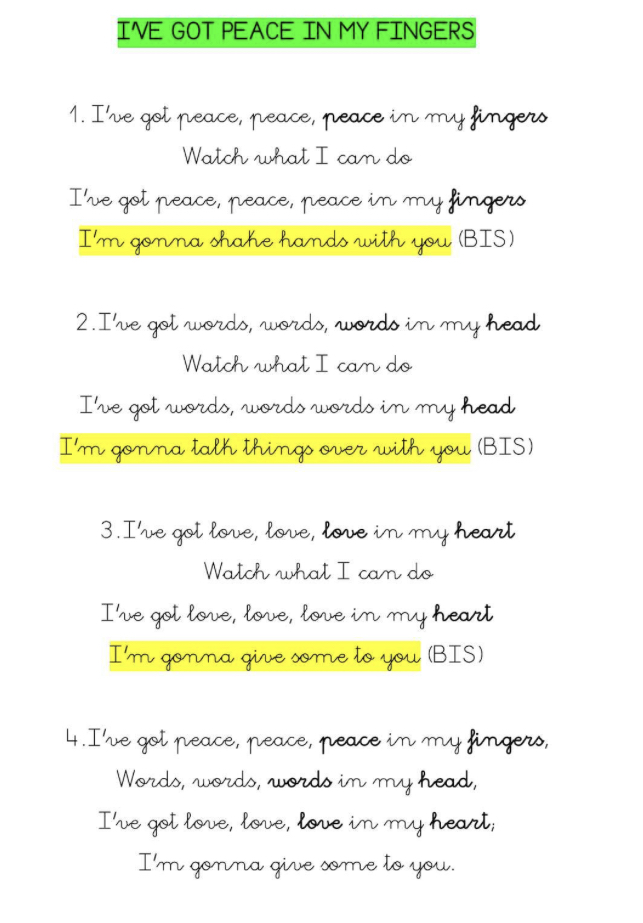 I'VE GOT PEACE IN MY FINGERS
1. I've got peace, peace, peace in my fingers
Watch what I can do
I've got peace, peace, peace in my fingers
I'm gonna shake hands with you (BIS)
2.I've got words, words, words in my head
Watch what I can do
I've got words, words words in my head
I'm gonna talk things over with you (BIS)
3.I've got love, love, love in my heart
Watch what I can do
I've got love, love, love in my heart
I'm gonna give some to you (BIS)
4.I've got peace, peace, peace in my fingers,
Words, words, words in my head,
I've got love, love, love in my heart;
I'm gonna give some to you.